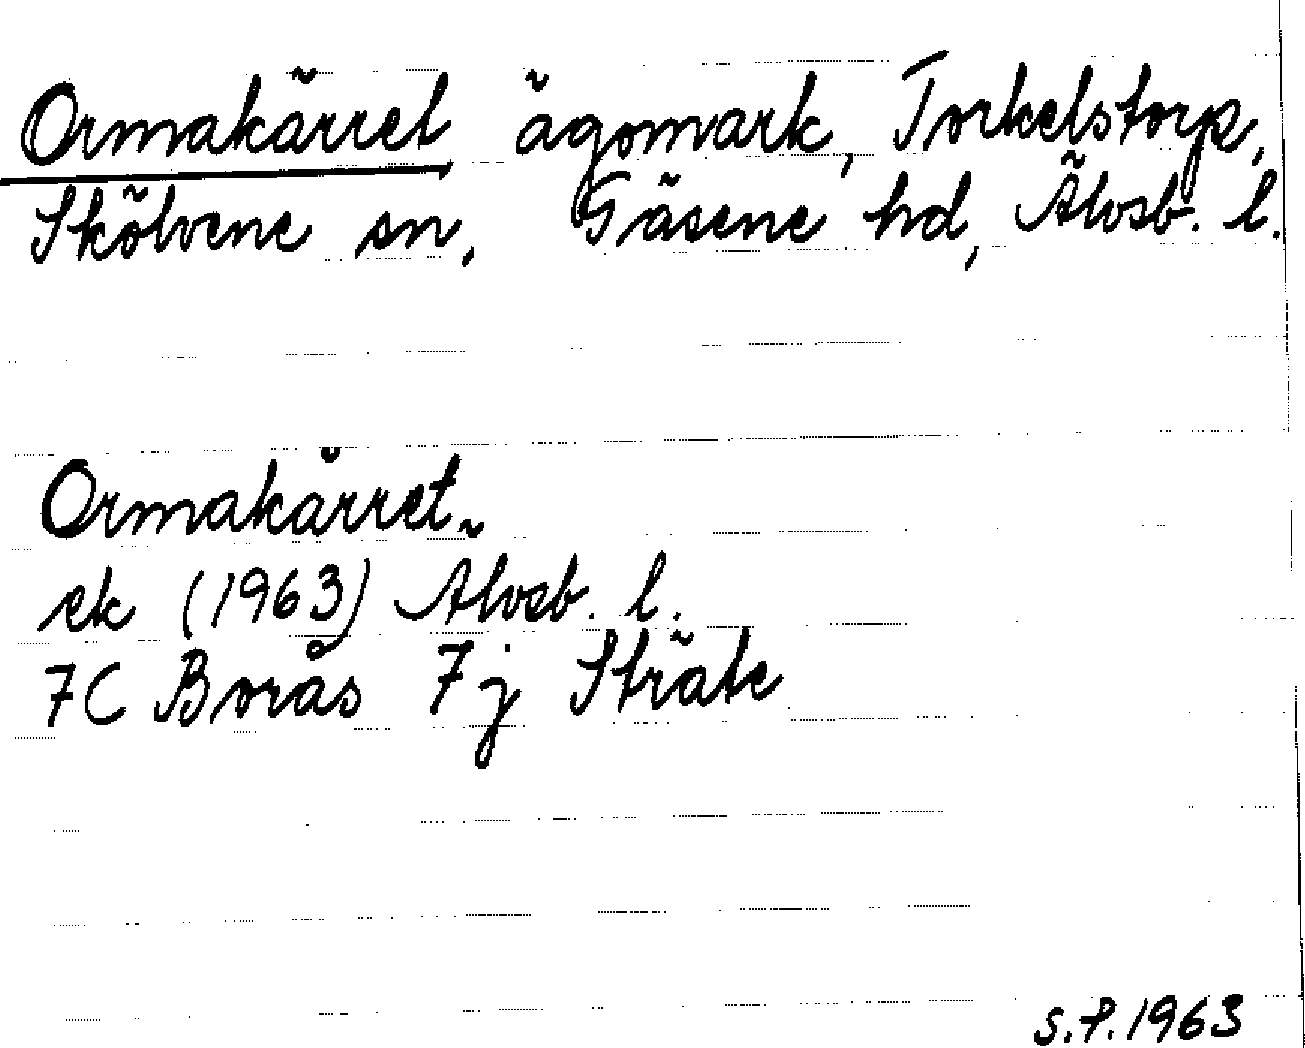 Ormakärret ägomark, Torkelstorp,
Skölvene sn, Gäsene hd, Älvsb. l.
Ormakärret.
ek (1963) Älvsb. l.
7C Borås 7j Sträte
S.P. 1963